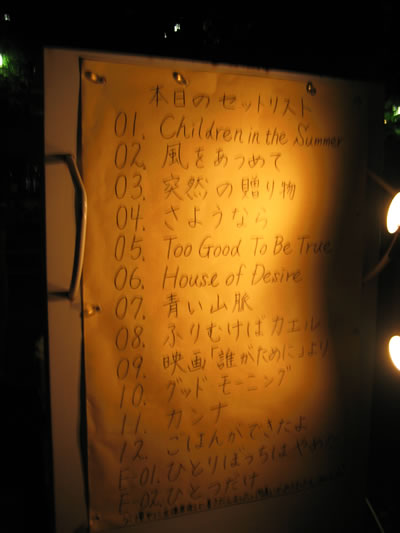 本日のセットリスト
01. Children in the Summer
02. 風をあつめて
03. 突然の贈り物
04. さようなら
05. Too Good To Be True
06. House of Desire
07. 青い山脈
08. ふりむけばカエル
09. 映画「誰がために」より
10. グッドモーニング
11. カンナ
12. ごはんができたよ
E-01. ひとりぼっちはやめた
E-02. ひとつだけ